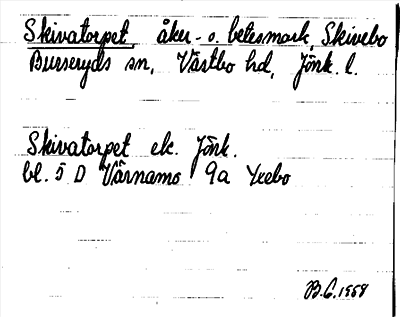 Skivatorpet, åker- o. betesmark, Skivebo
Burseryds sn, Västbo hd, Jönk. l.
Skivatorpet ek. Jönk.
bl. 5 D Värnamo 9a Yxebo
B.G. 1958